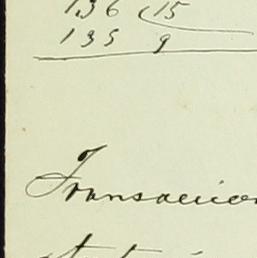 136 (15
135 9
Transacion